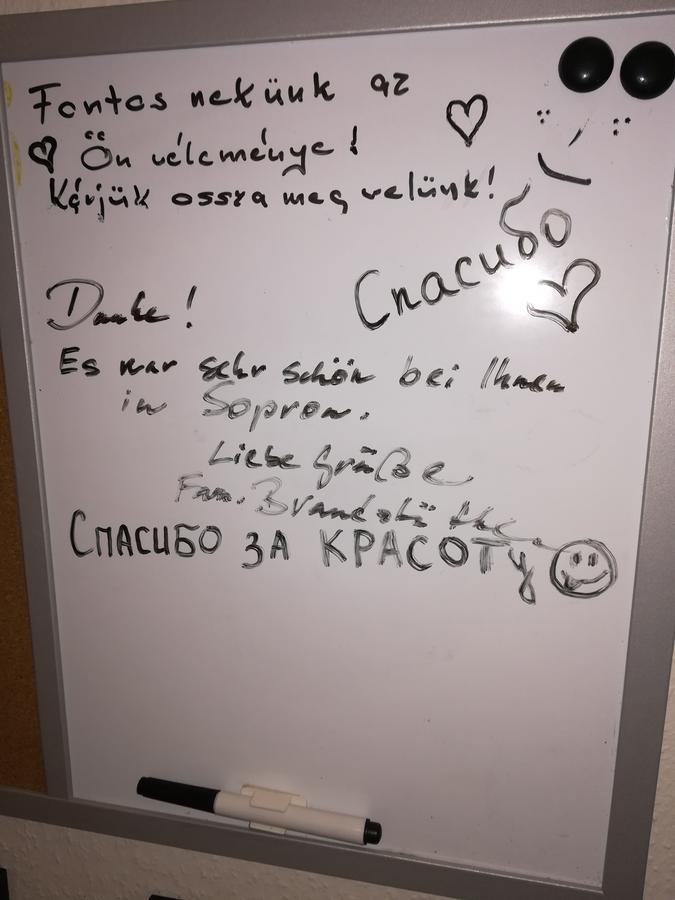 Fontos nekünk az
Ön véleménye!
Kérjük ossza meg velünk!
Спасибо
Danke!
Es war sehr schön bei Ihnen
in Sopron.
Liebe Grüße
Fam.
СПАСИБО ЗА КРАСОТУ